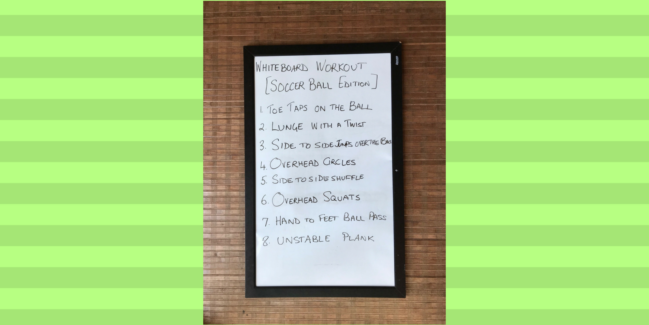 WHITEBOARD WORKOUT
[SOCCER BALL EDITION]
1. TOE TAPS ON THE BALL
2. LUNGE WITH A TWIST
3. SIDE TO SIDE JUMPS OVER THE BALL
4. OVERHEAD CIRCLES
5. SIDE TO SIDE SHUFFLE
6. OVERHEAD SQUATS
7. HAND TO FEET BALL PASS
8. UNSTABLE PLANK